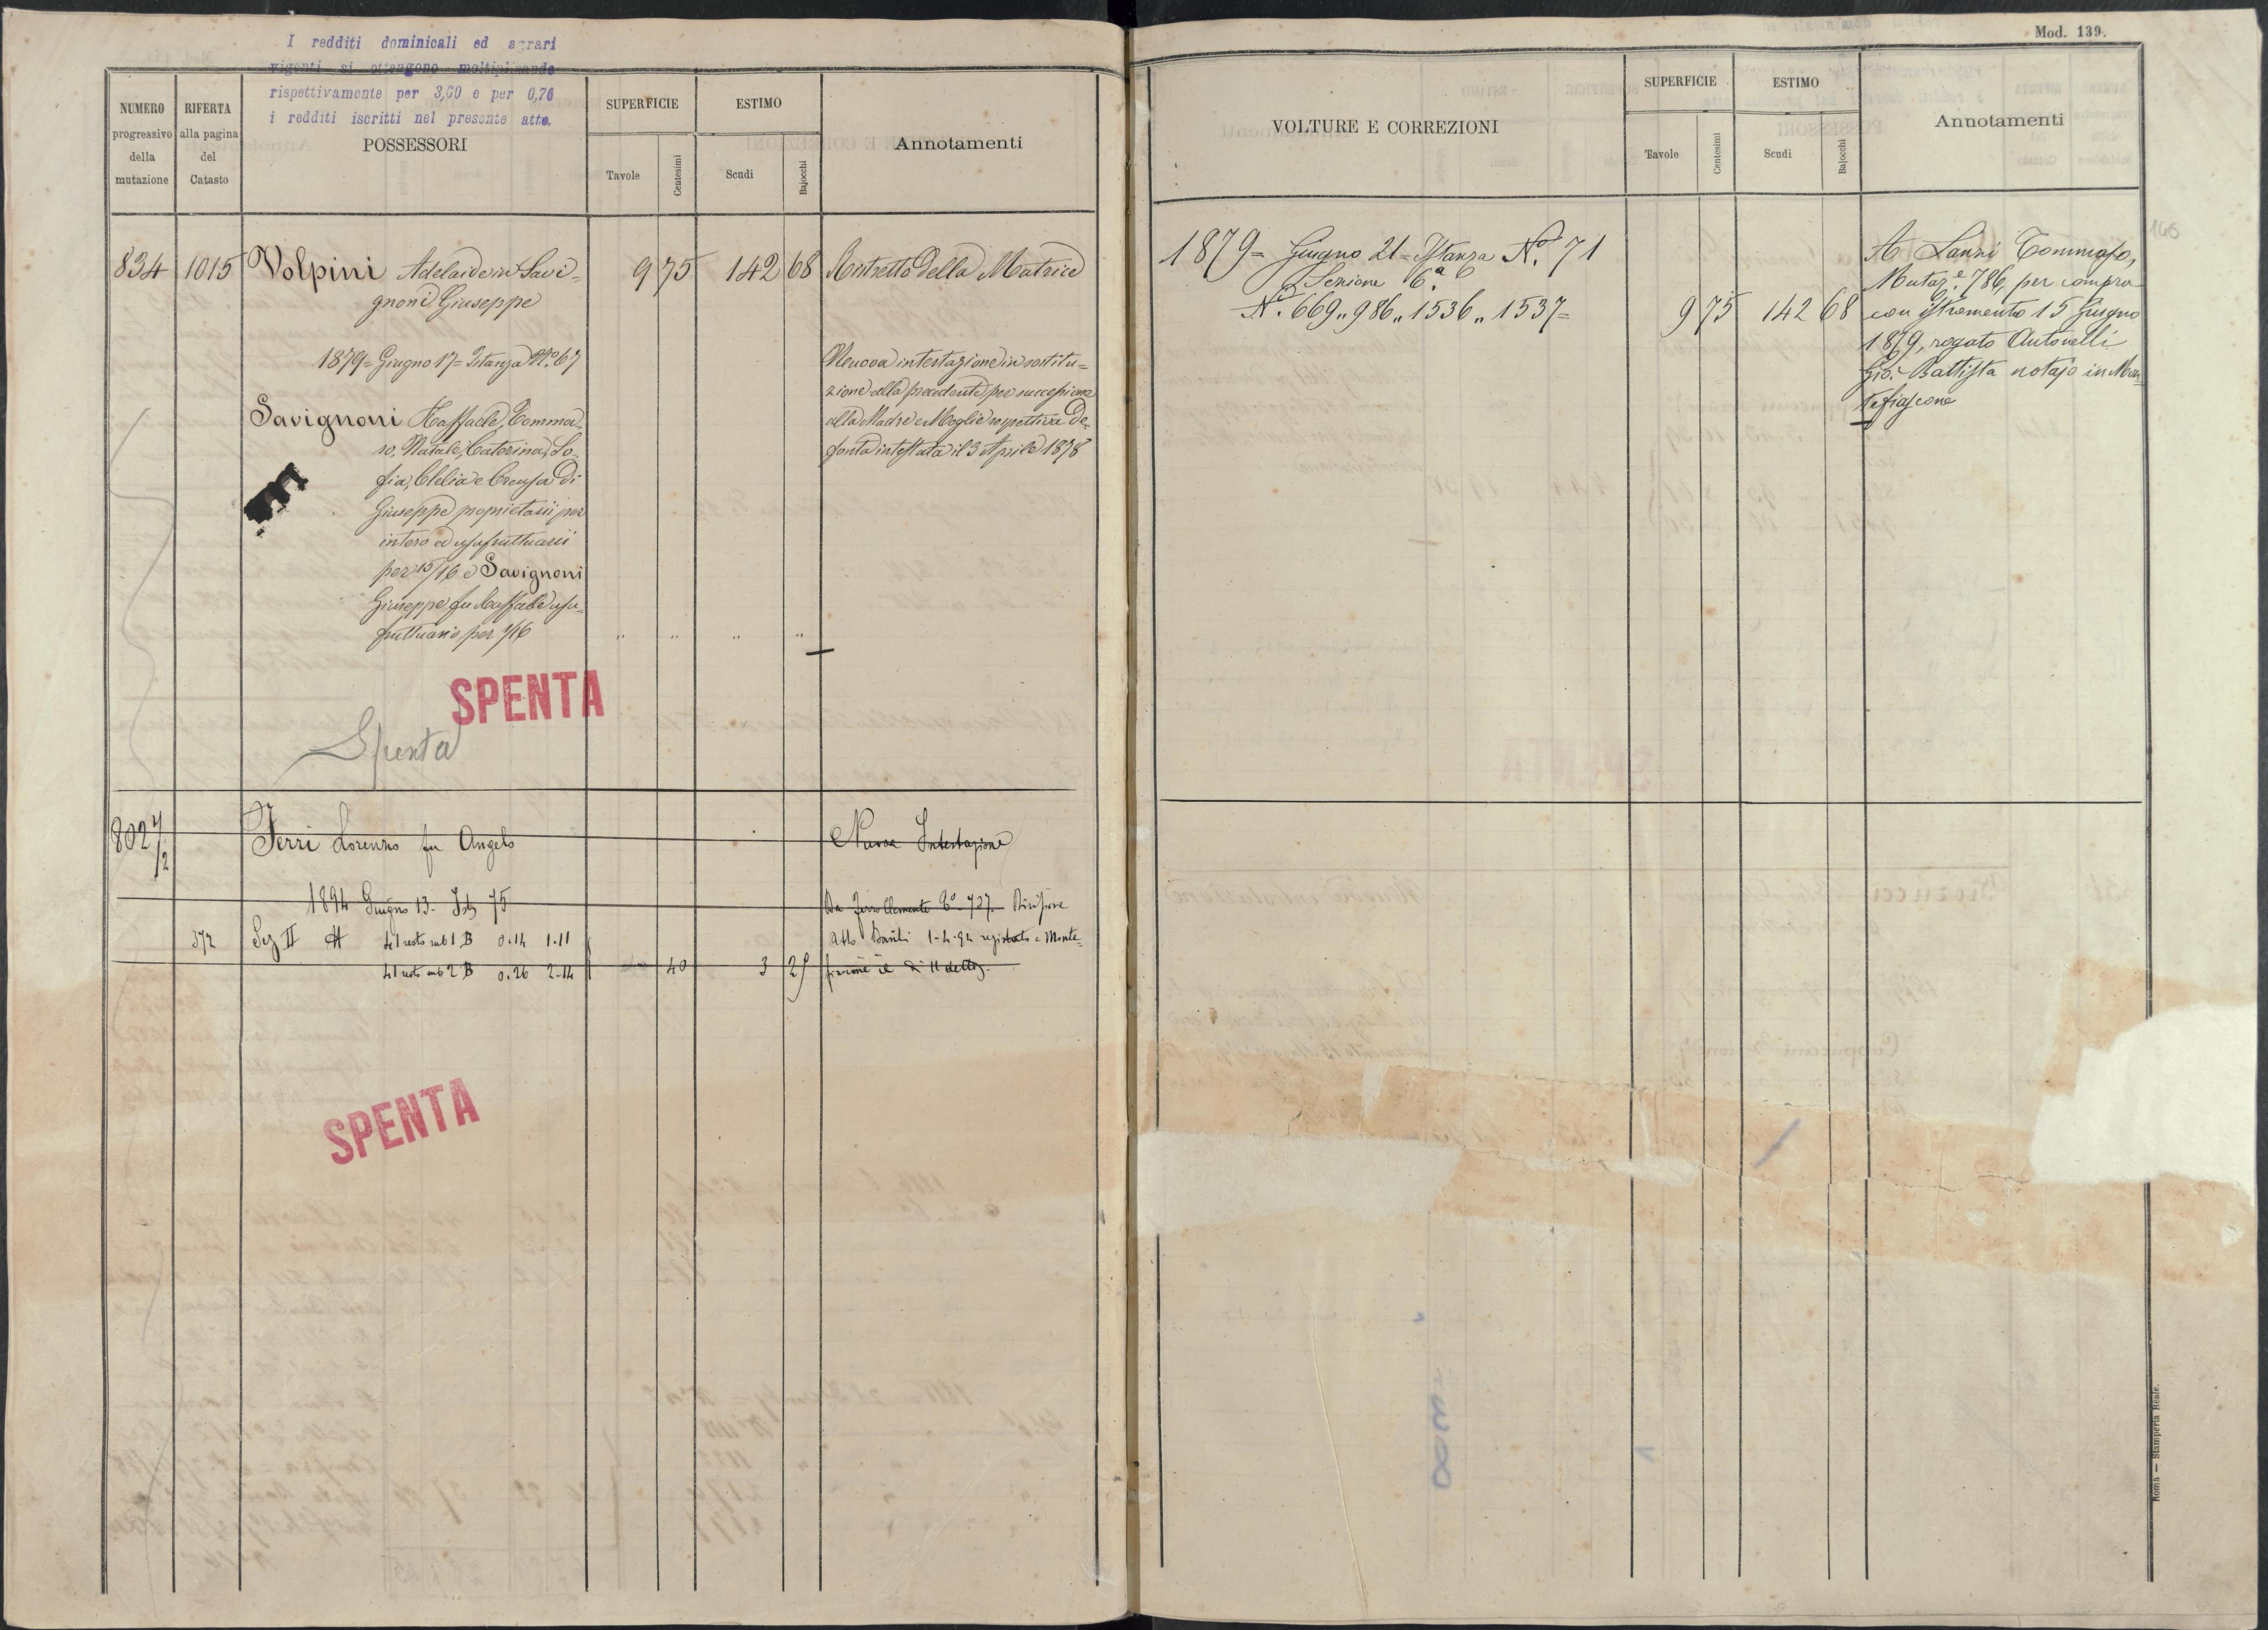 I redditi dominicali ed agrari
vigenti si ottengono moltiplicando
rispettivamente per 3,00 e per 0,76
i redditi iscritti nel presente atto.
NUMERO progressivo della mutazione
RIFERTA alla pagina del Catasto
POSSESSORI
SUPERFICIE
Tavole
Centesimi
ESTIMO
Scudi
Bajocchi
Annotamenti
834 1015 Volpini Adelaide in Savi- 9 75 142 68 Ristretto della Matrice
gnoni Giuseppe
1879 = Giugno 17 = Istanza N.º 67
Nuova intestazione in sostitu=
zione alla precedente per successione
alla Madre e Moglie rispettiva De-
fonta intestata il 3 Aprile 1878
Savignoni Raffaele, Tomma-
so, Natale, Caterina, So-
fia, Clelia e Creusa di
Giuseppe proprietarii per
intero ed usufruttuarii
per 15/16 e Savignoni
Giuseppe fu Raffaele usu-
fruttuario per 1/16 " " " "
SPENTA
Spenta
802 1/2 Ferri Lorenzo fu Angelo Nuova Intestazione
1894 Giugno 13 - Ist 75
Da Ferri Clemente 727. Divisione
372 Sez II 41 resto sub 1 B 0.14 1.11
Atto Basili 1-4-94 registrato a Monte-
41 resto sub 2 B 0.26 2.14 40 3 25
fiascone il dì 11 detto.
SPENTA
Mod. 139.
VOLTURE E CORREZIONI
SUPERFICIE
Tavole
Centesimi
ESTIMO
Scudi
Bajocchi
Annotamenti
165
1879 = Giugno 21 = Istanza N.º 71
Sezione 6.ª
N.º 669 „ 986 „ 1536 „ 1537 = 9 75 142 68
A Lanzi Tommaso,
Mutaz.e 786, per compra
con istromento 15 Giugno
1879, rogato Antonelli
Gio: Battista notajo in Mon-
tefiascone
Roma — Stamperia Reale.